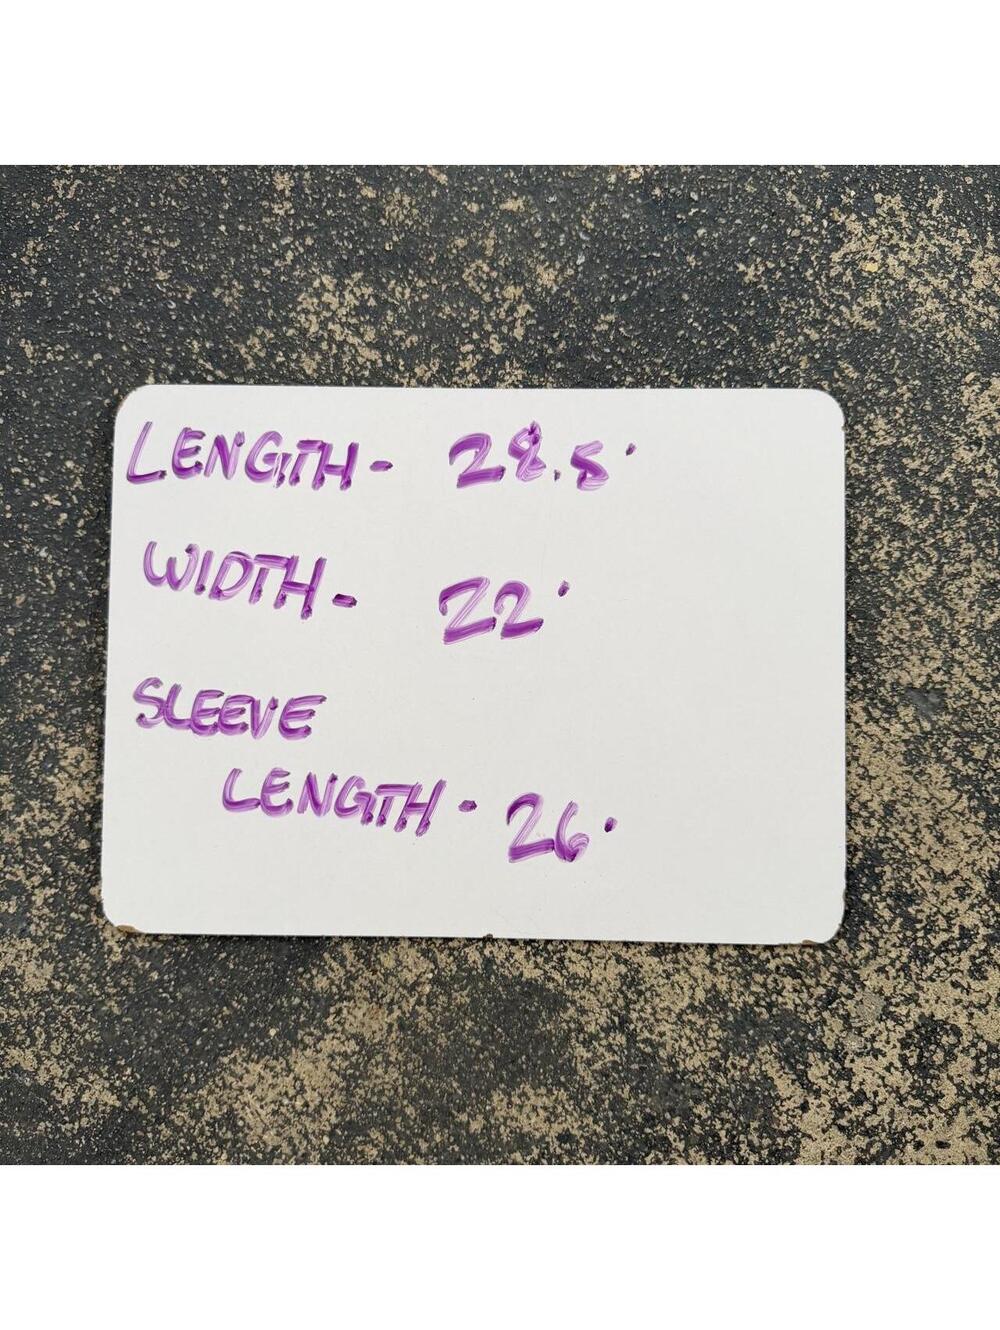 LENGTH- 28.5'
WIDTH- 22'
SLEEVE
LENGTH- 26'